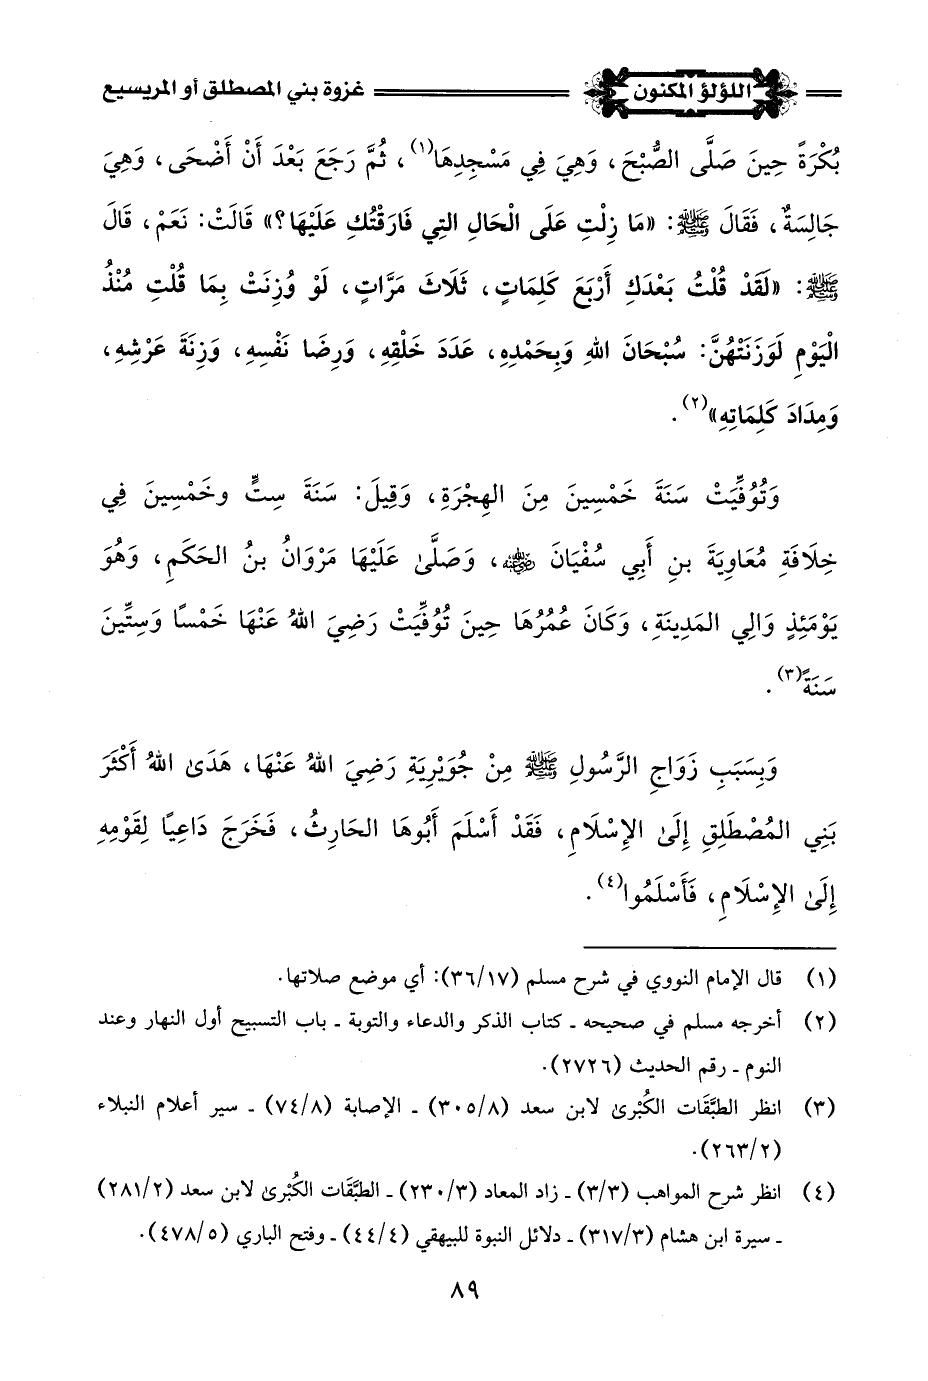 اللؤلؤ المكنون غزوة بني المصطلق أو المريسيع
بُكْرَةً حِينَ صَلَّى الصُّبْحَ، وَهِيَ فِي مَسْجِدِهَا(١)، ثُمَّ رَجَعَ بَعْدَ أَنْ أَضْحَى، وَهِيَ
جَالِسَةٌ، فَقَالَ ﷺ: «مَا زِلْتِ عَلَى الْحَالِ التِي فَارَقْتُكِ عَلَيْهَا؟» قَالَتْ: نَعَمْ، قَالَ
ﷺ: «لَقَدْ قُلْتُ بَعْدَكِ أَرْبَعَ كَلِمَاتٍ، ثَلَاثَ مَرَّاتٍ، لَوْ وُزِنَتْ بِمَا قُلْتِ مُنْذُ
الْيَوْمِ لَوَزَنَتْهُنَّ: سُبْحَانَ اللهِ وَبِحَمْدِهِ، عَدَدَ خَلْقِهِ، وَرِضَا نَفْسِهِ، وَزِنَةَ عَرْشِهِ،
وَمِدَادَ كَلِمَاتِهِ»(٢).
وَتُوُفِّيَتْ سَنَةَ خَمْسِينَ مِنَ الهِجْرَةِ، وَقِيلَ: سَنَةَ سِتٍّ وخَمْسِينَ فِي
خِلَافَةِ مُعَاوِيَةَ بنِ أَبِي سُفْيَانَ رضي الله عنه، وَصَلَّىٰ عَلَيْهَا مَرْوَانُ بنُ الحَكَمِ، وَهُوَ
يَوْمَئِذٍ وَالِي المَدِينَةِ، وَكَانَ عُمُرُهَا حِينَ تُوُفِّيَتْ رَضِيَ اللهُ عَنْهَا خَمْسًا وَسِتِّينَ
سَنَةً(٣).
وَبِسَبَبِ زَوَاجِ الرَّسُولِ ﷺ مِنْ جُوَيْرِيَةِ رَضِيَ اللهُ عَنْهَا، هَدَىٰ اللهُ أَكْثَرَ
بَنِي المُصْطَلِقِ إِلَىٰ الإِسْلَامِ، فَقَدْ أَسْلَمَ أَبُوهَا الحَارِثُ، فَخَرَجَ دَاعِيًا لِقَوْمِهِ
إِلَىٰ الإِسْلَامِ، فَأَسْلَمُوا(٤).
(١) قال الإمام النووي في شرح مسلم (٣٦/١٧): أي موضع صلاتها.
(٢) أخرجه مسلم في صحيحه ـ كتاب الذكر والدعاء والتوبة ـ باب التسبيح أول النهار وعند
النوم ـ رقم الحديث (٢٧٢٦).
(٣) انظر الطبَّقَات الكُبْرىٰ لابن سعد (٣٠٥/٨) ـ الإصابة (٧٤/٨) ـ سير أعلام النبلاء
(٢٦٣/٢).
(٤) انظر شرح المواهب (٣/٣) ـ زاد المعاد (٢٣٠/٣) ـ الطبَّقَات الكُبْرىٰ لابن سعد (٢٨١/٢)
ـ سيرة ابن هشام (٣١٧/٣) ـ دلائل النبوة للبيهقي (٤٤/٤) ـ وفتح الباري (٤٧٨/٥).
٨٩